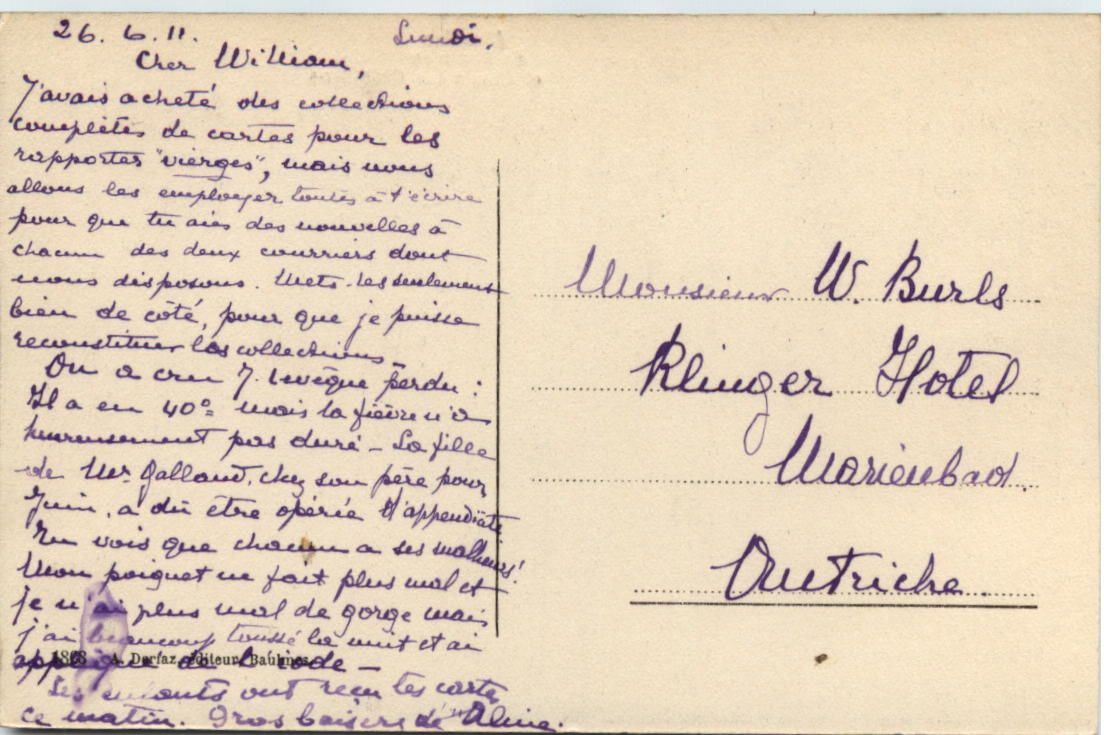 26. 6. 11. Lundi.
Cher William,
J'avais acheté des collections
complètes de cartes pour les
rapporter "vierges", mais nous
allons les employer toutes à t'écrire
pour que tu aies des nouvelles à
chacun des deux courriers dont
nous disposons. Mets-les seulement
bien de côté, pour que je puisse
reconstituer les collections -
On a cru J. Levêque perdu :
Il a eu 40° mais la fièvre n'a
heureusement pas duré - La fille
de Mr Galland, chez son père pour
Juin, a dû être opérée d'appendicite
Tu vois que chacun a ses malheurs!
Mon poignet ne fait plus mal et
je n'ai plus mal de gorge mais
j'ai beaucoup toussé la nuit et ai
de l'iode -
Les enfants ont reçu tes cartes
ce matin. Gros baisers de Aline.
A. Deriaz, éditeur, Baulmes
Monsieur W. Burls
Klinger Hotel
Marienbad.
Autriche.